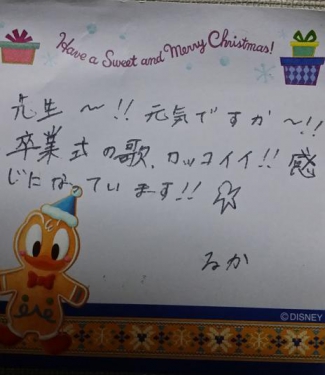 Have a Sweet and Merry Christmas!
先生～!! 元気ですか～!!
卒業式の歌、カッコイイ!! 感
じになっています!! ☆
るか
©DISNEY